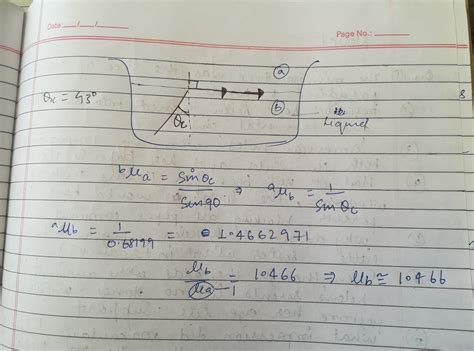 Date / /
Page No.:
a
θc = 43°
b
Liquid
θc
ᵇμₐ = Sinθc / Sin90 ⇒ ᵃμ_b = 1 / Sinθc
ᵃμb = 1 / 0.68199 = 1.4662971
μb / μa = 1.466 ⇒ μb ≃ 1.466
1